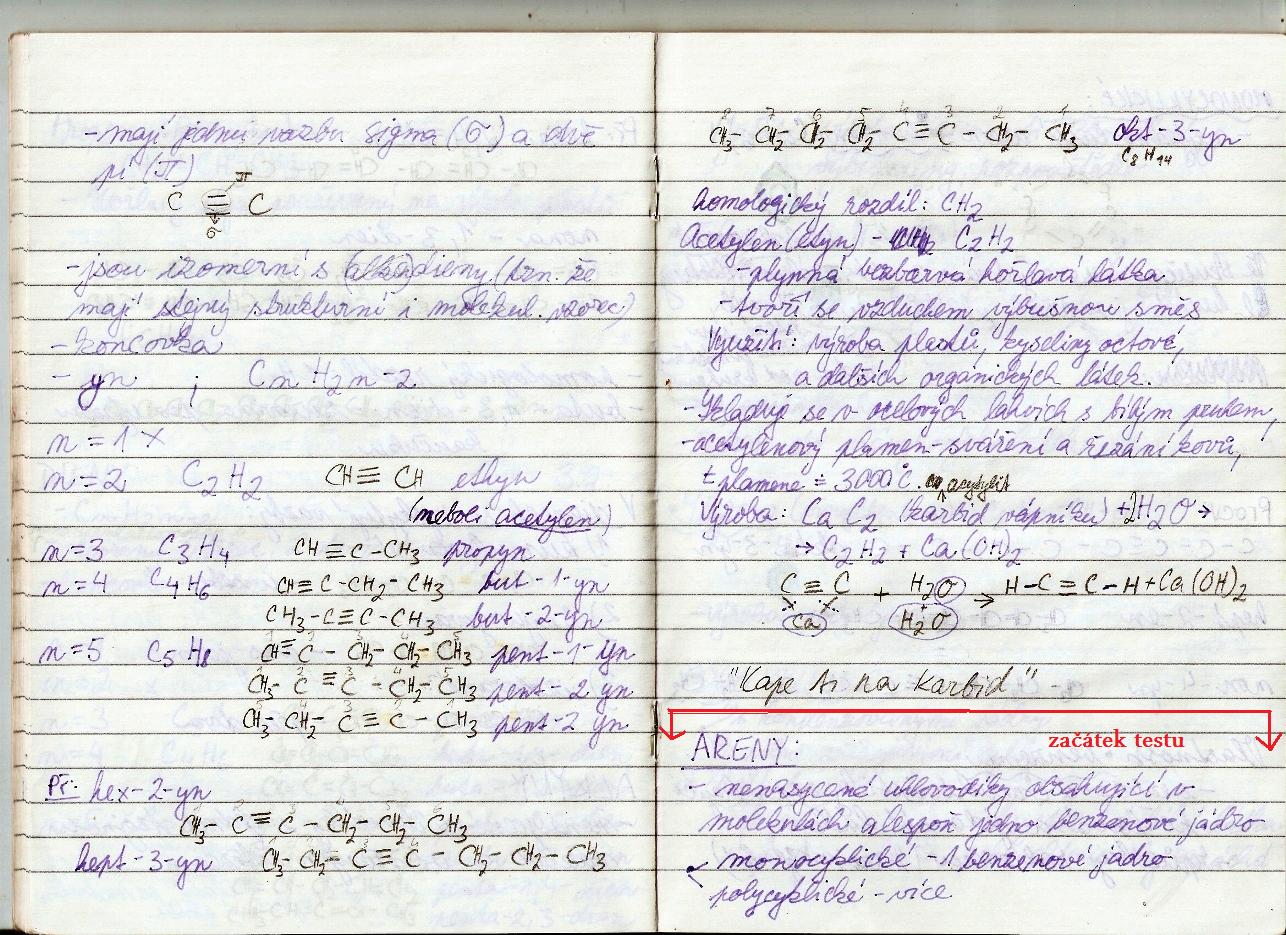 - mají jednu vazbu sigma (σ) a dvě
pí (π)
π
C ≡ C
σ
- jsou izomerní s (alka)dieny (tzn. že
mají stejný strukturní i molekul. vzorec)
- koncovka
- yn ; CnH2n-2
n = 1 ×
n = 2 C2H2 CH ≡ CH ethyn
(neboli acetylen)
n = 3 C3H4 CH ≡ C - CH3 propyn
n = 4 C4H6 CH ≡ C - CH2 - CH3 but-1-yn
CH3 - C ≡ C - CH3 but-2-yn
n = 5 C5H8 CH ≡ C - CH2 - CH2 - CH3 pent-1-yn
CH3 - C ≡ C - CH2 - CH3 pent-2 yn
CH3 - CH2 - C ≡ C - CH3 pent-2 yn
Př: hex-2-yn
CH3 - C ≡ C - CH2 - CH2 - CH3
hept-3-yn CH3 - CH2 - C ≡ C - CH2 - CH2 - CH3
8 7 6 5 4 3 2 1
CH3 - CH2 - CH2 - CH2 - C ≡ C - CH2 - CH3 okt-3-yn
C8H14
homologický rozdíl: CH2
Acetylen (etyn) - C2H2
- plynná bezbarvá hořlavá látka
- tvoří se vzduchem výbušnou směs
Využití: výroba plastů, kyseliny octové,
a dalších organických látek.
- Skladuje se v ocelových lahvích s bílým pruhem,
- acetylenový plamen - sváření a řezání kovů,
t plamene = 3000°C.
Výroba: CaC2 (karbid vápníku) + 2H2O →
→ C2H2 + Ca(OH)2
C ≡ C + H2O → H - C ≡ C - H + Ca(OH)2
Ca H2O
"Kape ti na karbid"
začátek testu
ARENY:
- nenasycené uhlovodíky obsahující v
molekulách alespoň jedno benzenové jádro
monocyklické - 1 benzenové jádro
polycyklické - více